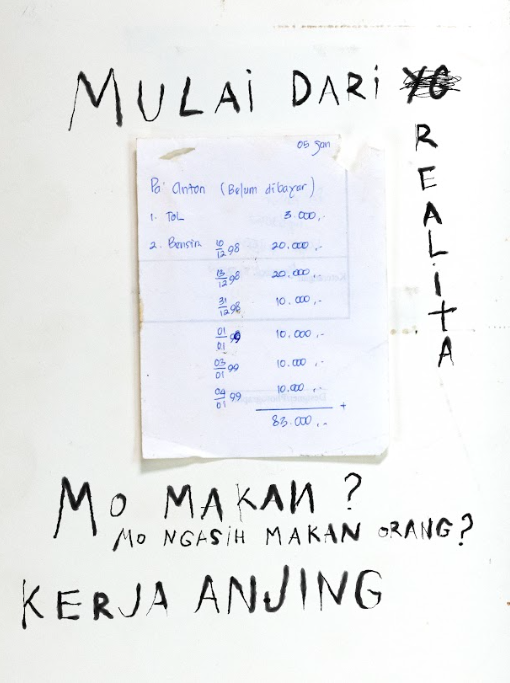 MULAI DARI
REALITA
05 Jan
Pa' Anton (Belum dibayar)
1. TOL 3.000,-
2. Bensin 10/12 98 20.000,-
13/12 98 20.000,-
31/12 98 10.000,-
01/01 99 10.000,-
03/01 99 10.000,-
04/01 99 10.000,-
+
83.000,-
MO MAKAN?
MO NGASIH MAKAN ORANG?
KERJA ANJING